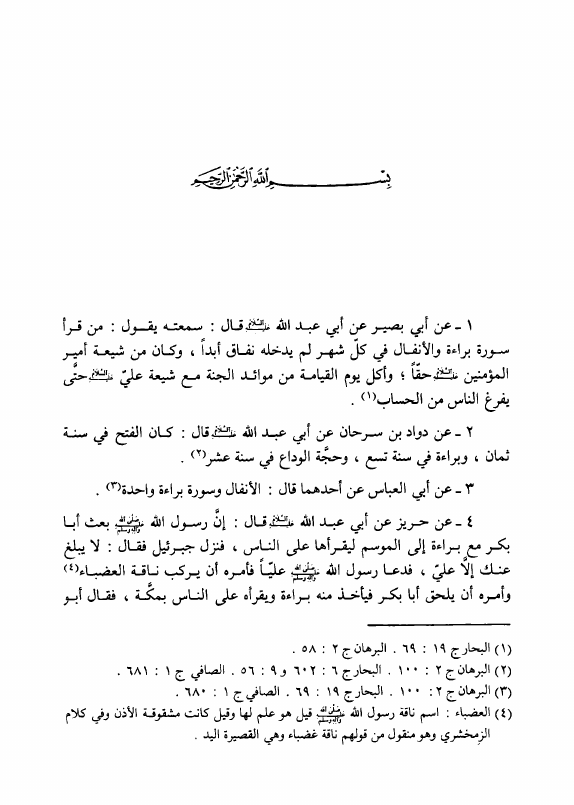 بِسْمِ اللَّهِ الرَّحْمَٰنِ الرَّحِيمِ
١ ـ عن أبي بصير عن أبي عبد الله عليه السلام قال : سمعته يقول : من قرأ
سورة براءة والأنفال في كلّ شهر لم يدخله نفاق أبداً ، وكان من شيعة أمير
المؤمنين عليه السلام حقّاً ؛ وأكل يوم القيامة من موائد الجنة مع شيعة عليّ عليه السلام حتَّى
يفرغ الناس من الحساب(١) .
٢ ـ عن دواد بن سرحان عن أبي عبد الله عليه السلام قال : كان الفتح في سنة
ثمان ، وبراءة في سنة تسع ، وحجَّة الوداع في سنة عشر(٢) .
٣ ـ عن أبي العباس عن أحدهما قال : الأنفال وسورة براءة واحدة(٣) .
٤ ـ عن حريز عن أبي عبد الله عليه السلام قال : إنَّ رسول الله صلى الله عليه وآله وسلم بعث أبا
بكر مع براءة إلى الموسم ليقرأها على الناس ، فنزل جبرئيل فقال : لا يبلغ
عنك إلَّا عليّ ، فدعا رسول الله صلى الله عليه وآله وسلم عليّاً فأمره أن يركب ناقة العضباء(٤)
وأمره أن يلحق أبا بكر فيأخذ منه براءة ويقرأه على الناس بمكَّة ، فقال أبو
(١) البحار ج ١٩ : ٦٩ . البرهان ج ٢ : ٥٨ .
(٢) البرهان ج ٢ : ١٠٠ . البحار ج ٦ : ٦٠٢ و ٩ : ٥٦ . الصافي ج ١ : ٦٨١ .
(٣) البرهان ج ٢ : ١٠٠ . البحار ج ١٩ : ٦٩ . الصافي ج ١ : ٦٨٠ .
(٤) العضباء : اسم ناقة رسول الله صلى الله عليه وآله وسلم قيل هو علم لها وقيل كانت مشقوقة الأذن وفي كلام
الزمخشري وهو منقول من قولهم ناقة غضباء وهي القصيرة اليد .